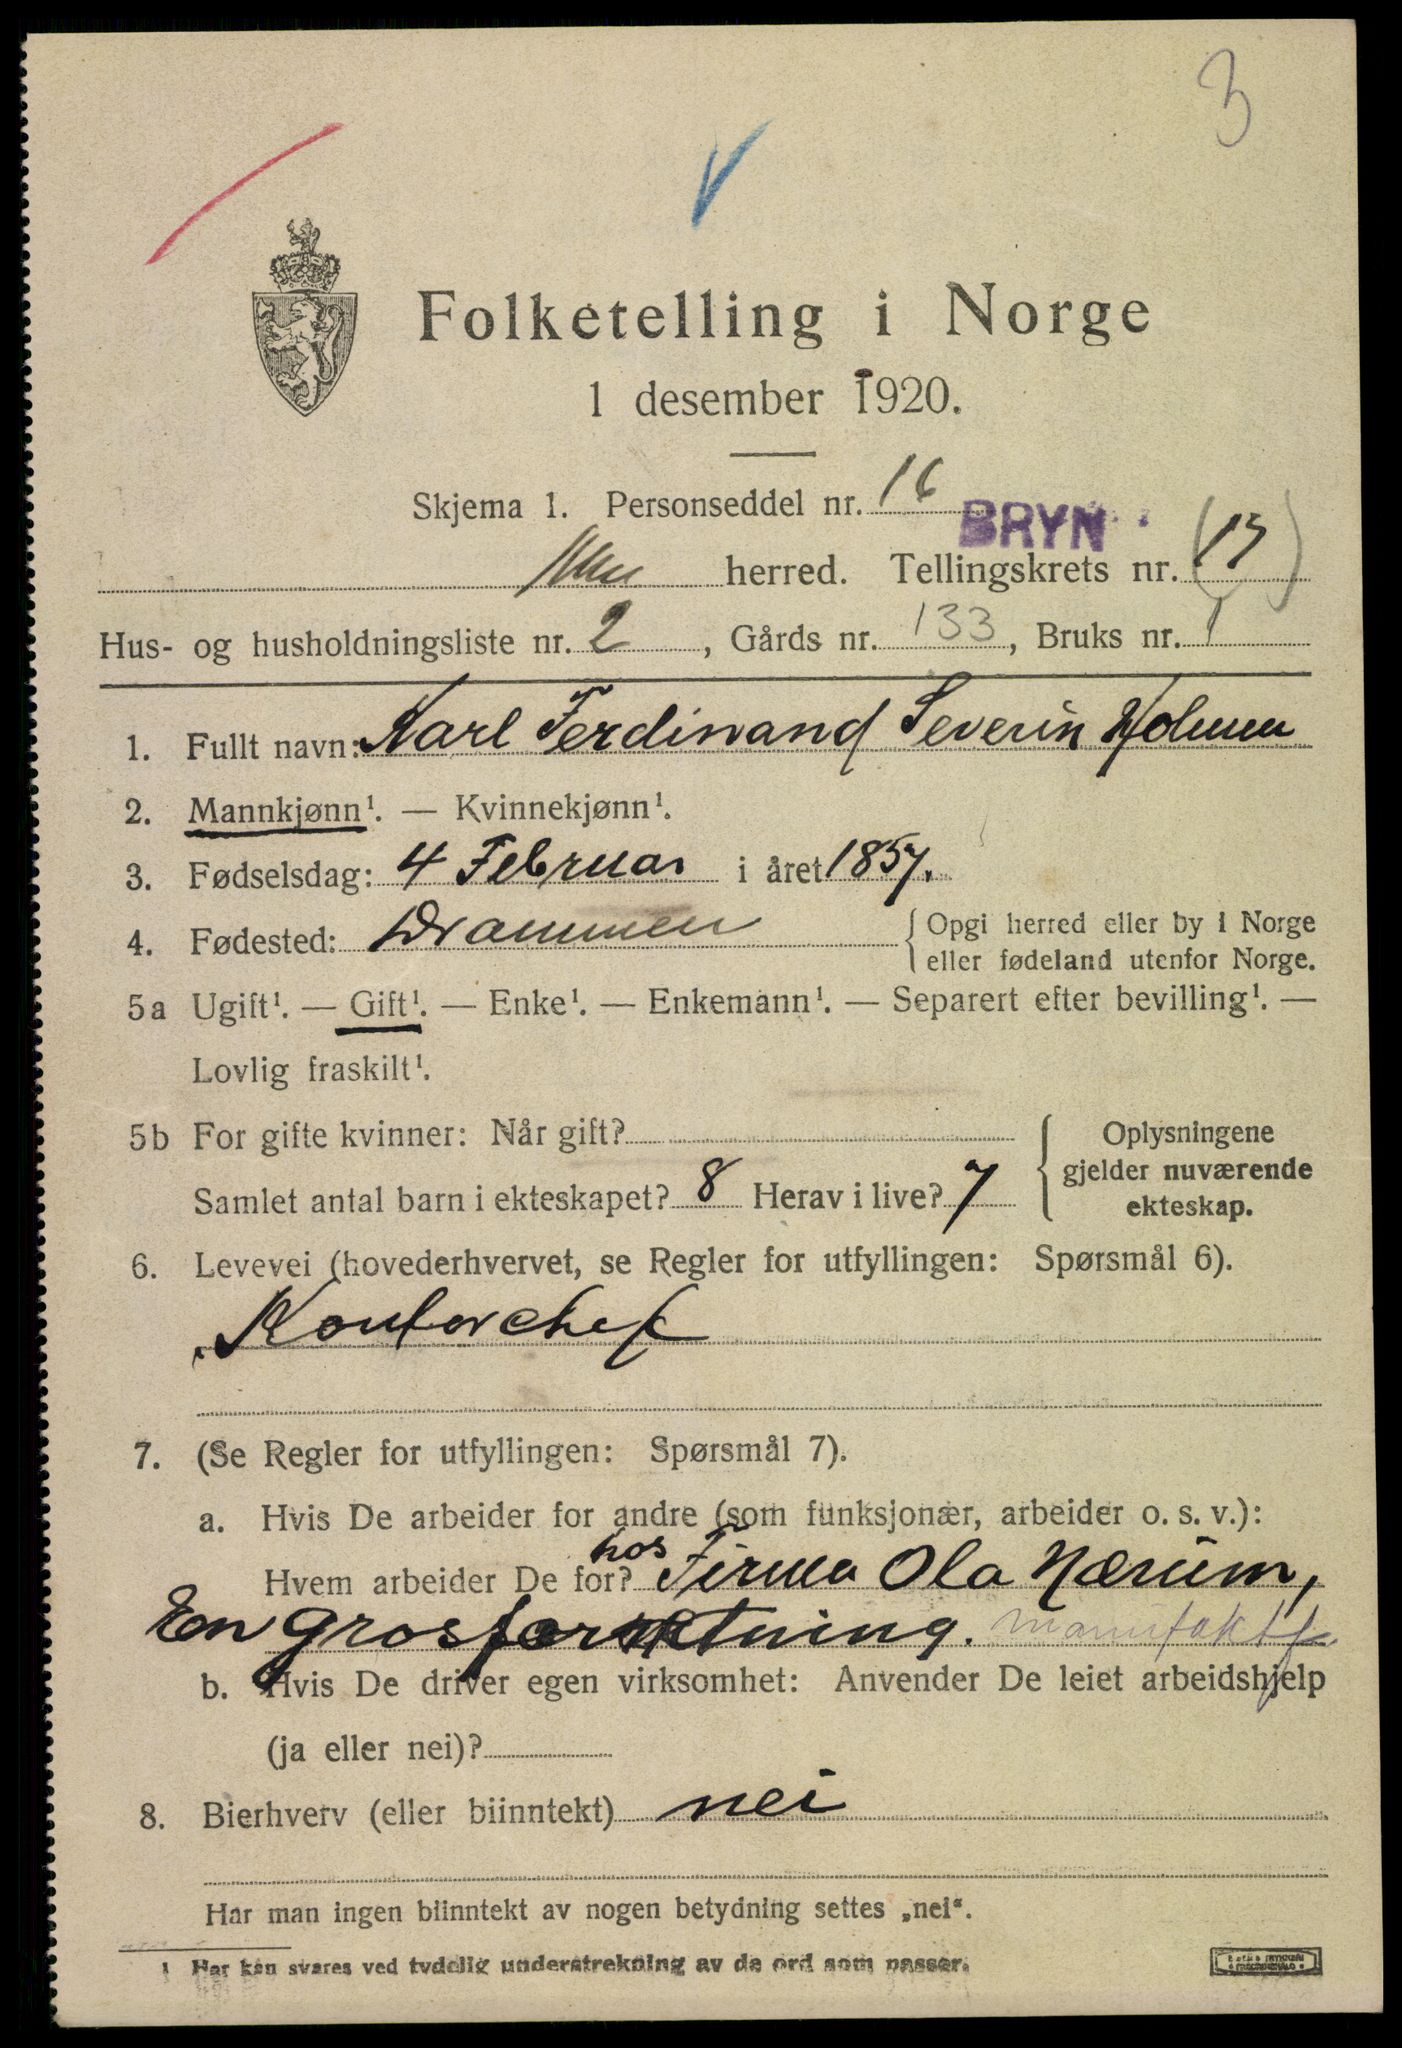 3
Folketelling i Norge
1 desember 1920.
Skjema 1. Personseddel nr. 16
BRYN
Aker herred. Tellingskrets nr. (17)
Hus- og husholdningsliste nr. 2, Gårds nr. 133, Bruks nr. 1
1. Fullt navn: Karl Ferdinand Severin Holmen
2. Mannkjønn¹. — Kvinnekjønn¹.
3. Fødselsdag: 4 Februar i året 1857.
4. Fødested: Drammen { Opgi herred eller by i Norge
eller fødeland utenfor Norge.
5a Ugift¹. — Gift¹. — Enke¹. — Enkemann¹. — Separert efter bevilling¹. —
Lovlig fraskilt¹.
5b For gifte kvinner: Når gift?
Samlet antal barn i ekteskapet? 8 Herav i live? 7
Oplysningene
gjelder nuværende
ekteskap.
6. Levevei (hovederhvervet, se Regler for utfyllingen: Spørsmål 6).
Kontorchef
7. (Se Regler for utfyllingen: Spørsmål 7).
a. Hvis De arbeider for andre (som funksjonær, arbeider o. s. v.):
Hvem arbeider De for? hos Firma Ola Nærum,
En grosforretning. manufaktf.
b. Hvis De driver egen virksomhet: Anvender De leiet arbeidshjelp
(ja eller nei)?
8. Bierhverv (eller biinntekt) nei
Har man ingen biinntekt av nogen betydning settes „nei“.
1 Her kan svares ved tydelig understrekning av de ord som passer.